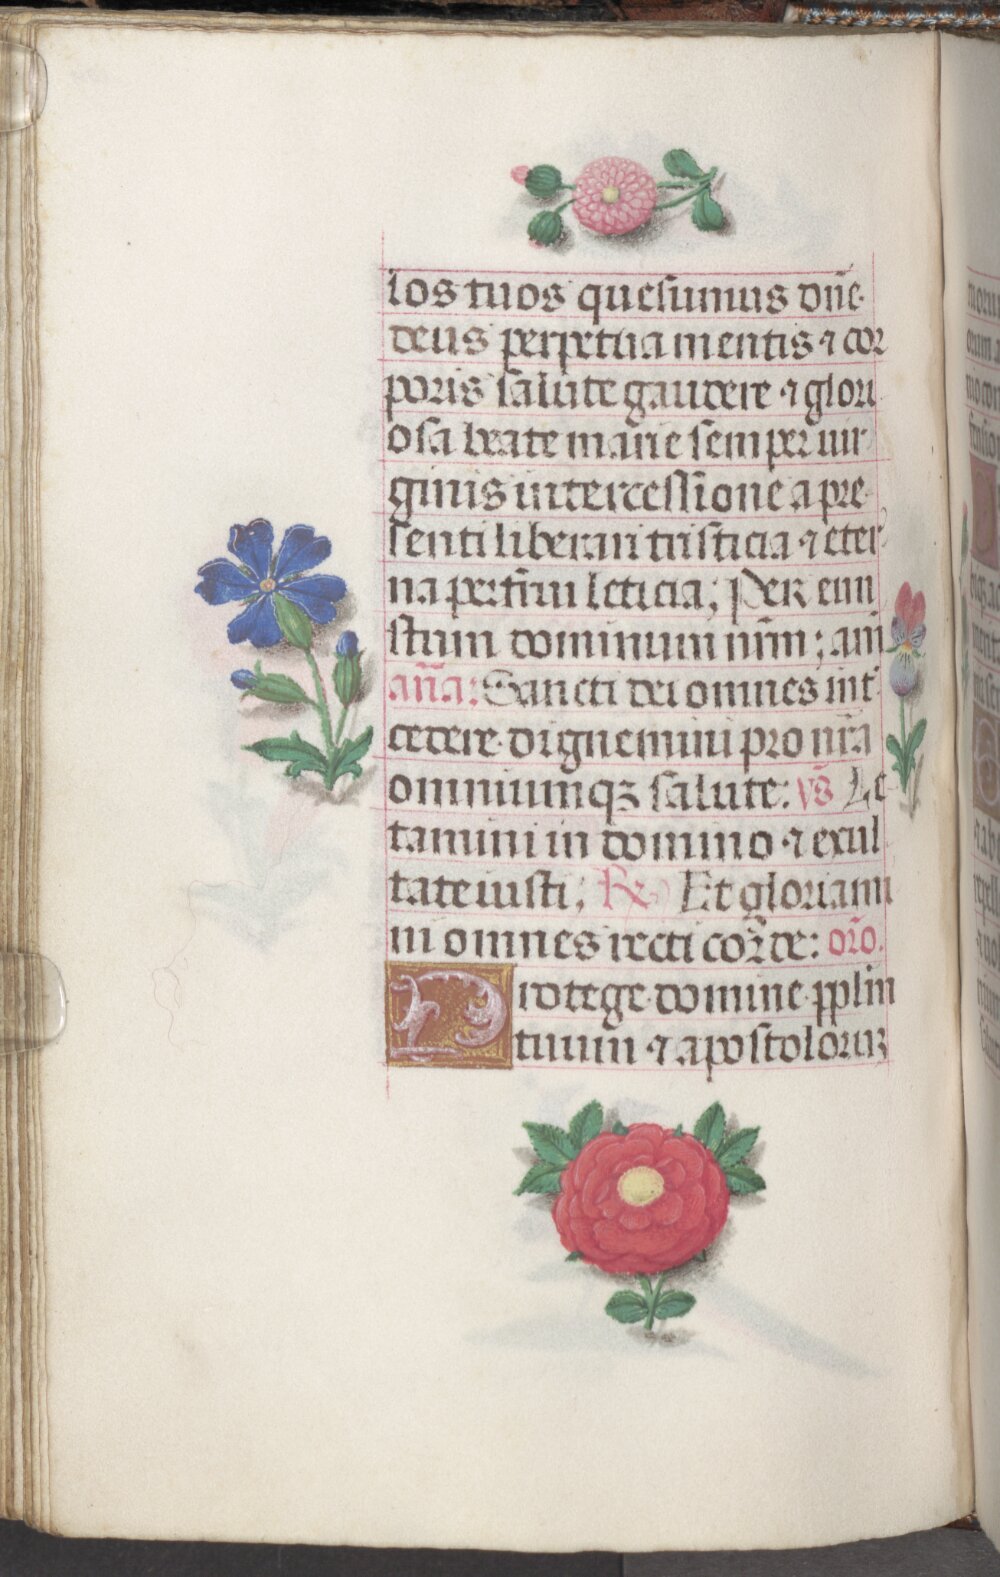 los tuos quesumus dñe
deus perpetua mentis ⁊ cor
poris salute gaudere ⁊ glori
osa beate marie semper uir
ginis intercessione a pre
senti liberari tristicia ⁊ eter
na perfrui leticia; Per cm̄
stum dominum nr̄m; am
an̄a: Sancti dei omnes int̄
cedere dignemini pro nr̄a
omniumqȝ salute: vs̄ Le
tamini in domino ⁊ exul
tate iusti; Rx Et gloriami
ni omnes recti corde: or̄o.
Protege domine pplm
tuum ⁊ apostoloruȝ